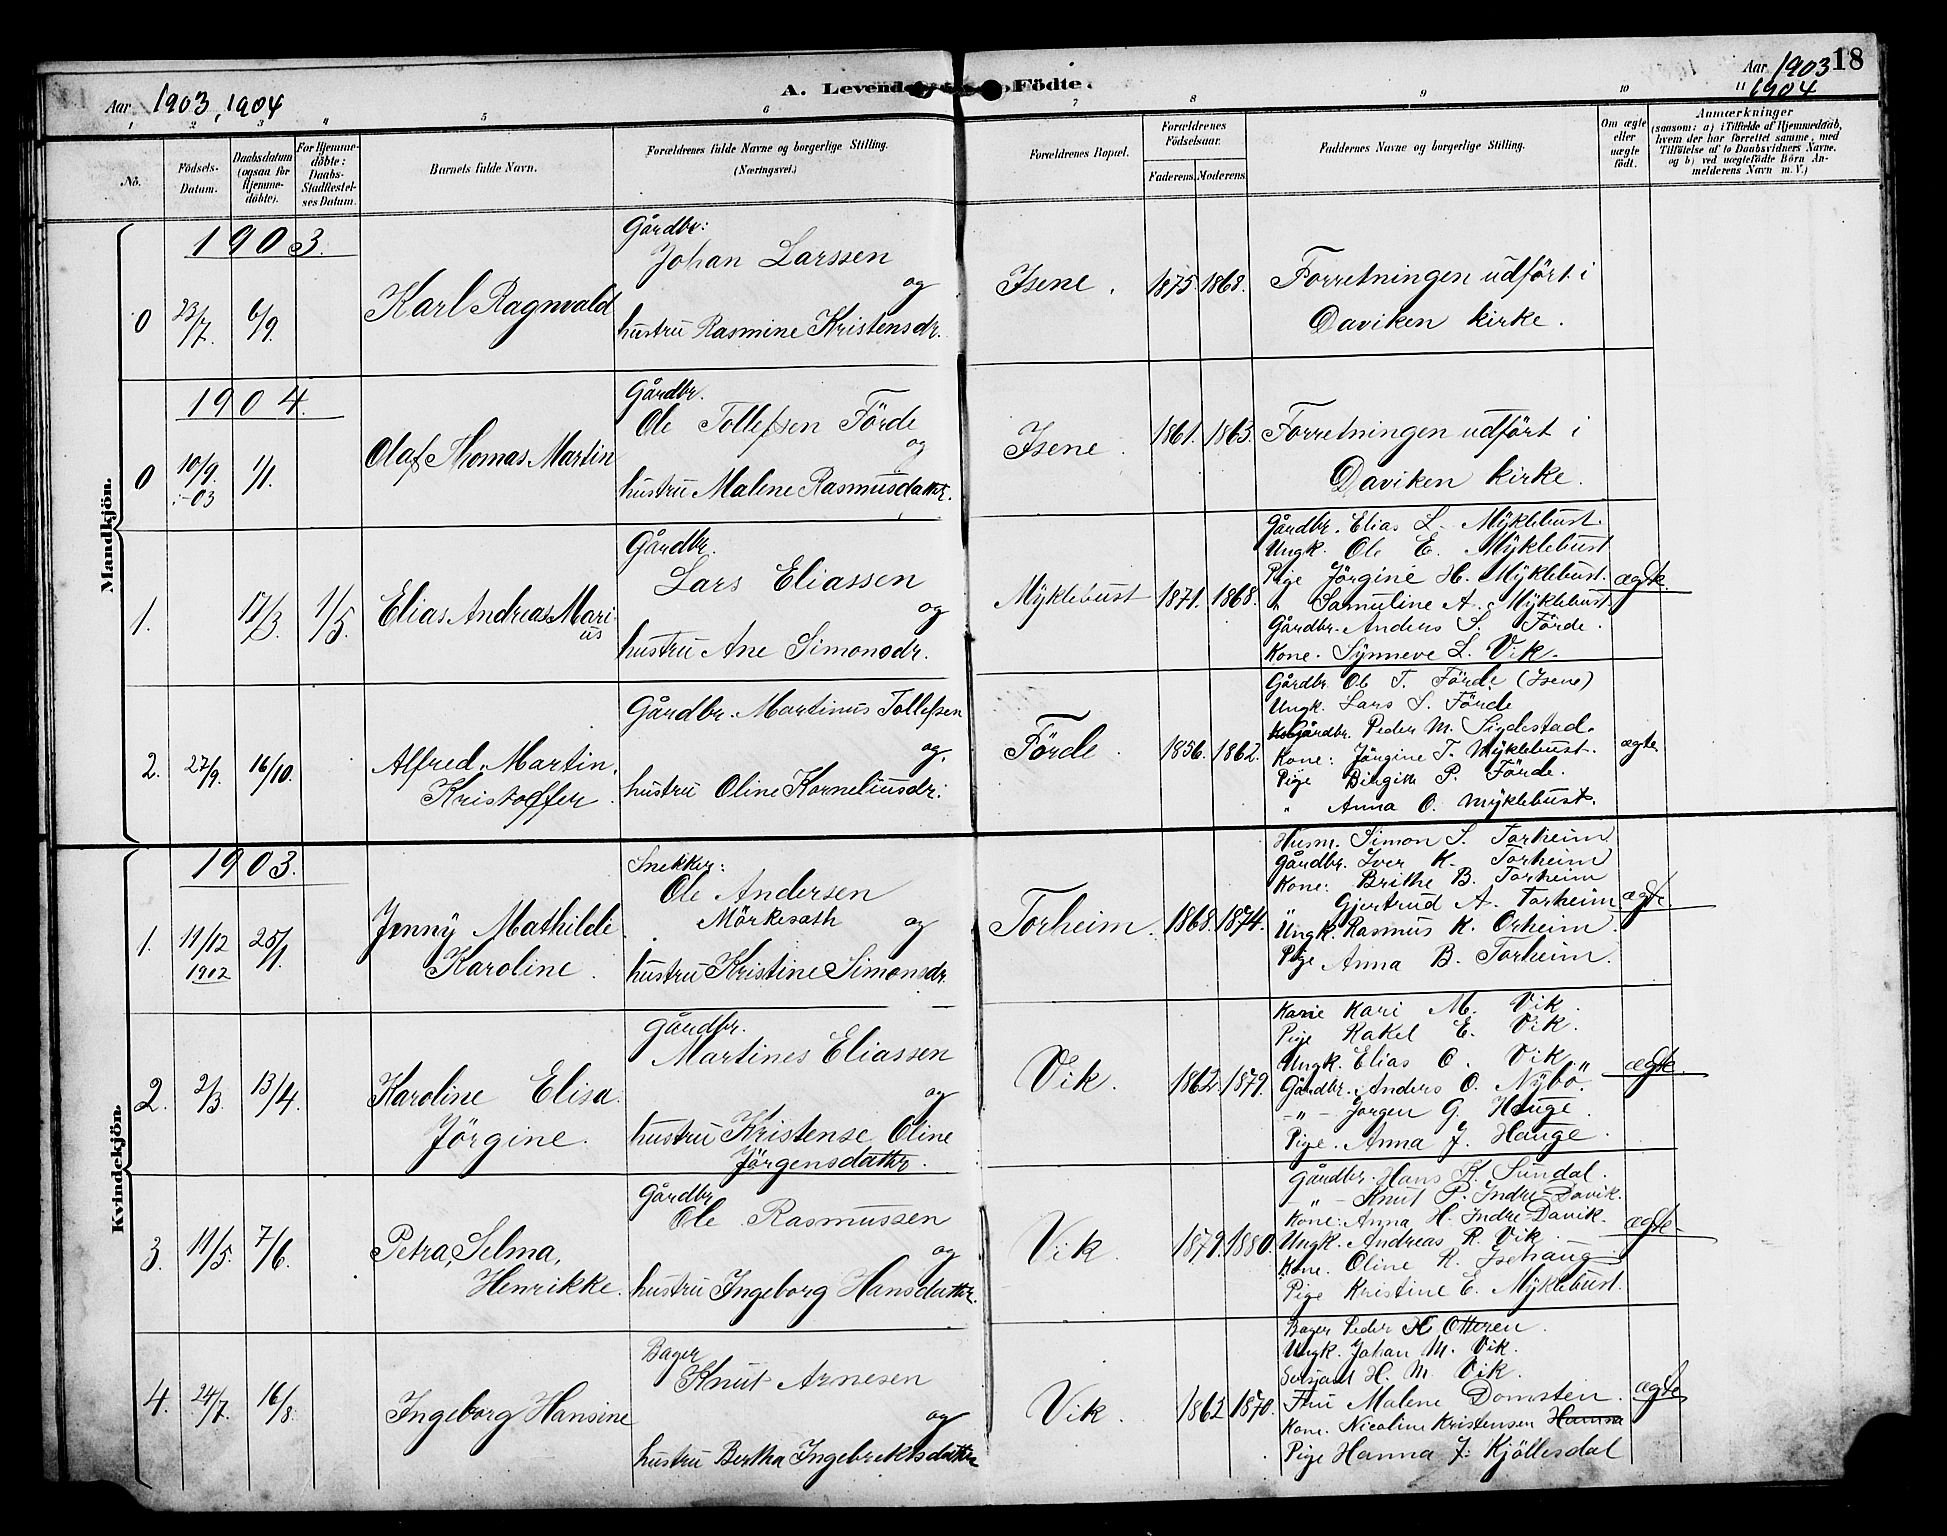 Aar 1903, 1904
A. Levende Födte.
Aar 1903 18
1904
1 2 3 4 5 6 7 8 9 10 11
No.
Födsels-Datum.
Daabsdatum (ogsaa for Hjemme-döbte).
For Hjemme-döbte: Daabs-Stadfæstel-ses Datum.
Barnets fulde Navn.
Forældrenes fulde Navne og borgerlige Stilling.
(Næringsvei.)
Forældrenes Bopæl.
Forældrenes Födselsaar.
Faderens. Moderens.
Faddernes Navne og borgerlige Stilling.
Om ægte eller uægte födt.
Anmærkninger
(saasom: a) i Tilfælde af Hjemmedaab, hvem der har forrettet samme, med Tilföielse af to Daabsvidners Navne, og b) ved uægtefödte Börn An-melderens Navn m. V.)
Mandkjön.
1903.
0 23/7. 6/9. Karl Ragnvald
Gårdbr:
Johan Larssen
og
hustru Rasmine Kristensdr.
Isene. 1875. 1868.
Forretningen udfört i
Daviken kirke.
1904.
0 10/9. :-03 1/1. Olaf Thomas Martin
Gårdbr.
Ole Tollefsen Förde
og
hustru Malene Rasmusdatter.
Isene. 1861. 1863.
Forretningen udfört i
Daviken kirke.
1. 17/3. 1/5. Elias Andreas Mari-
us
Gårdbr.
Lars Eliassen
og
hustru Ane Simonsdr.
Mÿklebust 1871. 1868.
Gårdbr. Elias L. Mÿklebust.
Ungk. Ole E. Mÿklebust
Pige Jörgine H. Mÿklebust.
" Samuline A. Mÿklebust.
Gårdbr. Anders S. Förde.
Kone. Sÿnneve L. Vik.
ægte.
2. 27/9. 16/10. Alfred Martin
Kristoffer.
Gårdbr. Martinus Tollefsen
og
hustru Oline Korneliusdr.
Förde. 1856. 1862.
Gårdbr. Ole T. Förde (Isene)
Ungk. Lars S. Förde
Gårdbr. Peder M. Sigdestad.
Kone: Jörgine T. Mÿklebust.
Pige Birgitte P. Förde.
" Anna O. Mÿklebust.
ægte.
Kvindekjön.
1903.
1. 11/12 1902 25/1. Jenny Mathilde
Karoline.
Snekker:
Ole Andersen
Mörkesath og
hustru Kristine Simonsdr.
Torheim. 1868. 1874.
Husm. Simon S. Torheim
Gårdbr. Iver K. Torheim
Kone: Brithe B. Torheim
" Gjertrud A. Torheim
Ungk. Rasmus K. Orheim.
Pige Anna B. Torheim.
ægte.
2. 2/3. 13/4. Karoline Elisa
Jörgine.
Gårdbr.
Martines Eliassen
og
hustru Kristense Oline
Jörgensdatter.
Vik. 1862. 1879.
Kone Kari M. Vik.
Pige Rakel E. Vik.
Ungk. Elias O. Vik
Gårdbr. Anders O. Nÿbö.
-"- Jörgen G. Hauge.
Pige. Anna J. Hauge.
ægte.
3. 11/5. 7/6. Petra, Selma,
Henrikke.
Gårdbr
Ole Rasmussen
og
hustru Ingeborg Hansdatter.
Vik. 1879. 1880.
Gårdbr. Hans K. Sundal.
-"- Knut P. Indre-Davik.
Kone: Anna H. Indre-Davik.
Ungk. Andreas R. Vik.
Kone. Oline R. Isehaug
Pige Kristine E. Mÿklebust.
ægte
4. 24/7. 16/8. Ingeborg Hansine
Bager
Knut Arnesen
og
hustru Bertha Ingebrektsdatter
Vik. 1862 1870.
Bager Peder K Otteren.
Ungk. Johan M. Vik.
H. M. Vik.
Fru Malene Domsten.
Kone. Nicoline Kristensen Hamna
Pige Hanna J. Kjöllesdal
ægte